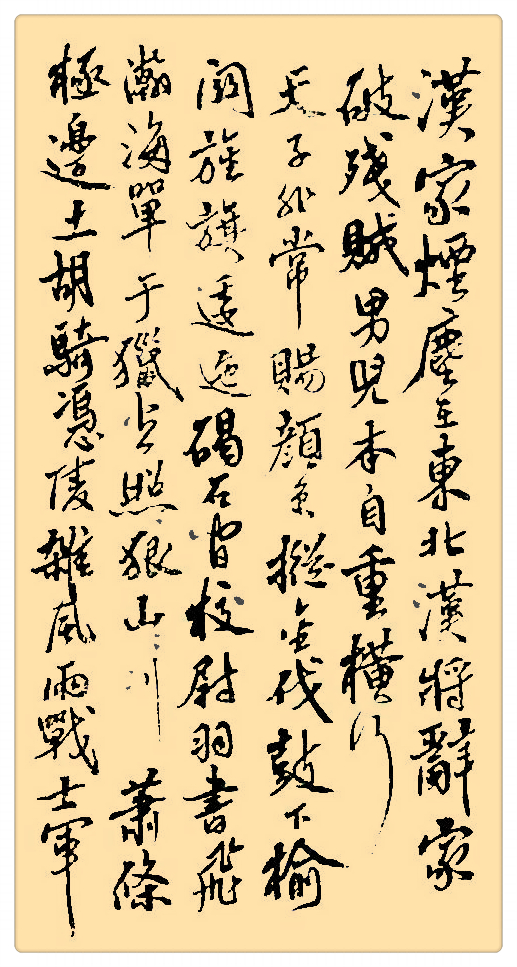 漢家煙塵在東北漢將辭家
破殘賊男兒本自重橫行
天子非常賜顏色摐金伐鼓下榆
關旌旗逶迤碣石間校尉羽書飛
瀚海單于獵火照狼山々川蕭條
極邊土胡騎憑陵雜風雨戰士軍